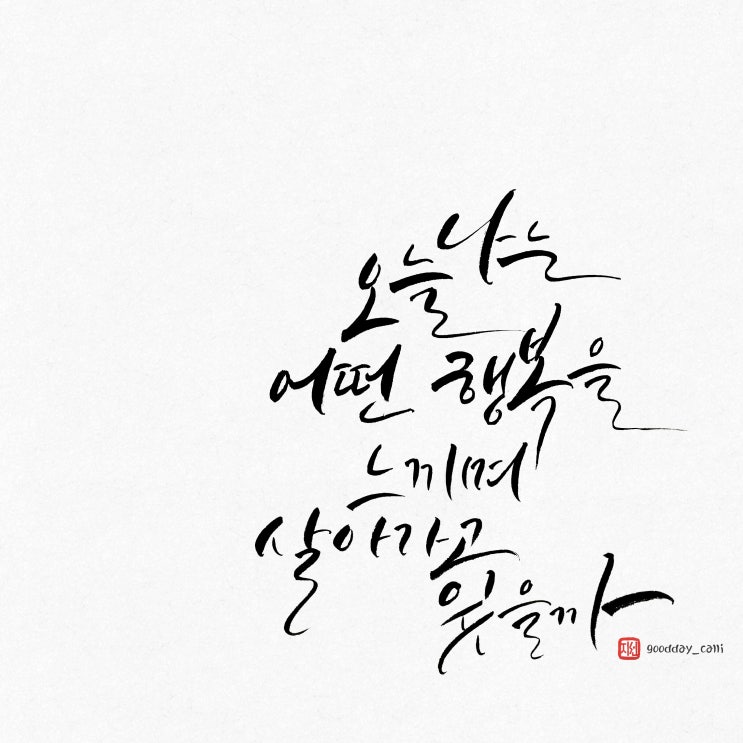 오늘 나는
어떤 행복을
느끼며
살아가고
있을까
goodday_calli